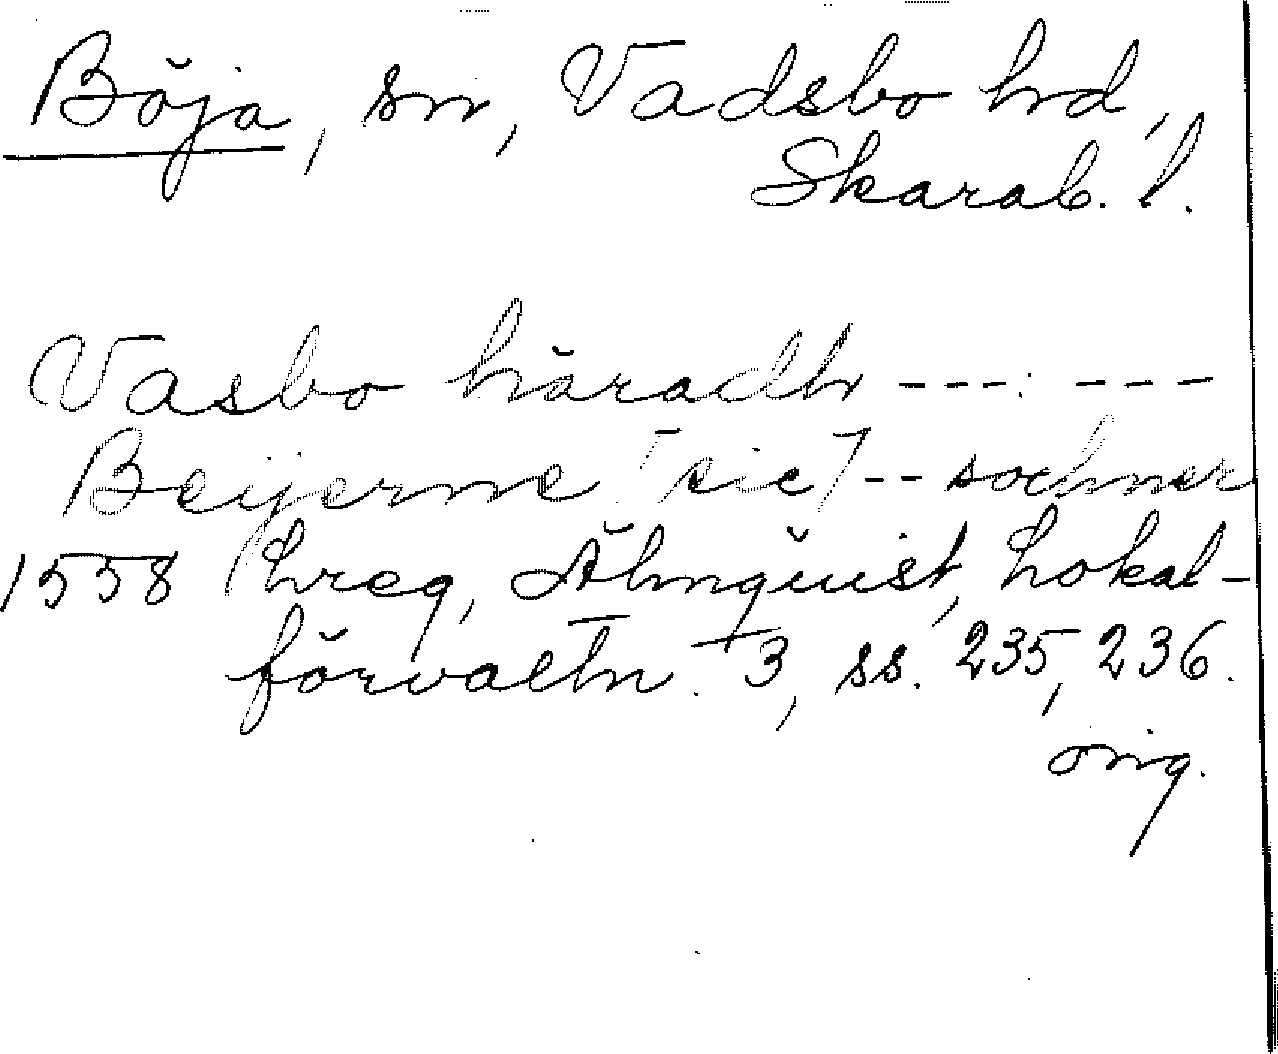 Böja, sn, Vadsbo hd,
Skarab. l.
Vasbo häradh --- ---
Beijerne [sic] -- sochner
1558 Ftreg, Älmquist, Lokal-
förvaltn. 3, ss. 235, 236.
orig.